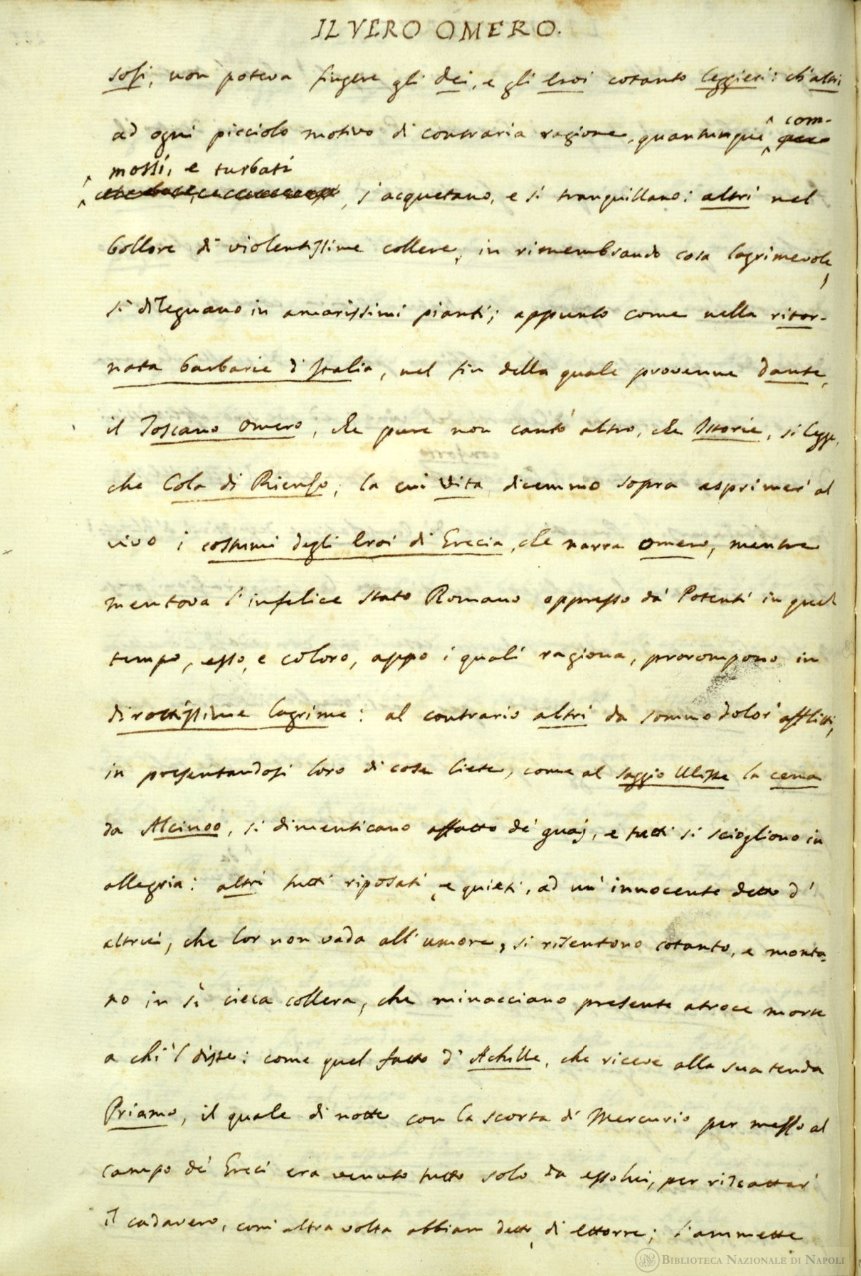 IL VERO OMERO.
sofi, non poteva fingere gli dei, e gli Eroi cotanto leggieri: ch'altri
ad ogni picciolo motivo di contraria ragione, quantunque com-
mossi, e turbati
, s'acquetano, e si tranquillano: altri nel
bollore di violentissime collere, in rimembrando cosa lagrimevole,
si dileguano in amarissimi pianti; appunto come nella ritor-
nata barbarie d'Italia, nel fin della quale provenne Dante,
il Toscano Omero, che pure non cantò altro, che Istorie, si legge,
che Cola di Rienzo, la cui Vita dicemmo sopra esprimer' al
vivo i costumi degli Eroi di Grecia, che narra Omero, mentre
mentova l'infelice stato Romano oppresso da' Potenti in quel
tempo, esso, e coloro, appo i quali ragiona, prorompono in
dirottissime lagrime: al contrario altri da sommo dolor' afflitti,
in presentandosi loro di cose liete, come al saggio Ulisse la cena
da Alcinoo, si dimenticano affatto de' guaj, e tutti si sciogliono in
allegria: altri tutti riposati, e quieti, ad un' innocente detto d'
altrui, che lor non vada all'umore, si risentono cotanto, e monta-
no in sì cieca collera, che minacciano presente atroce morte
a chi 'l disse: come quel fatto d'Achille, che riceve alla sua tenda
Priamo, il quale di notte con la scorta di Mercurio per mezzo al
campo de' Greci era venuto tutto solo da essolui, per riscattar'
il cadavero, com' altra volta abbiam detto, di Ettorre; l'ammette
BIBLIOTECA NAZIONALE DI NAPOLI